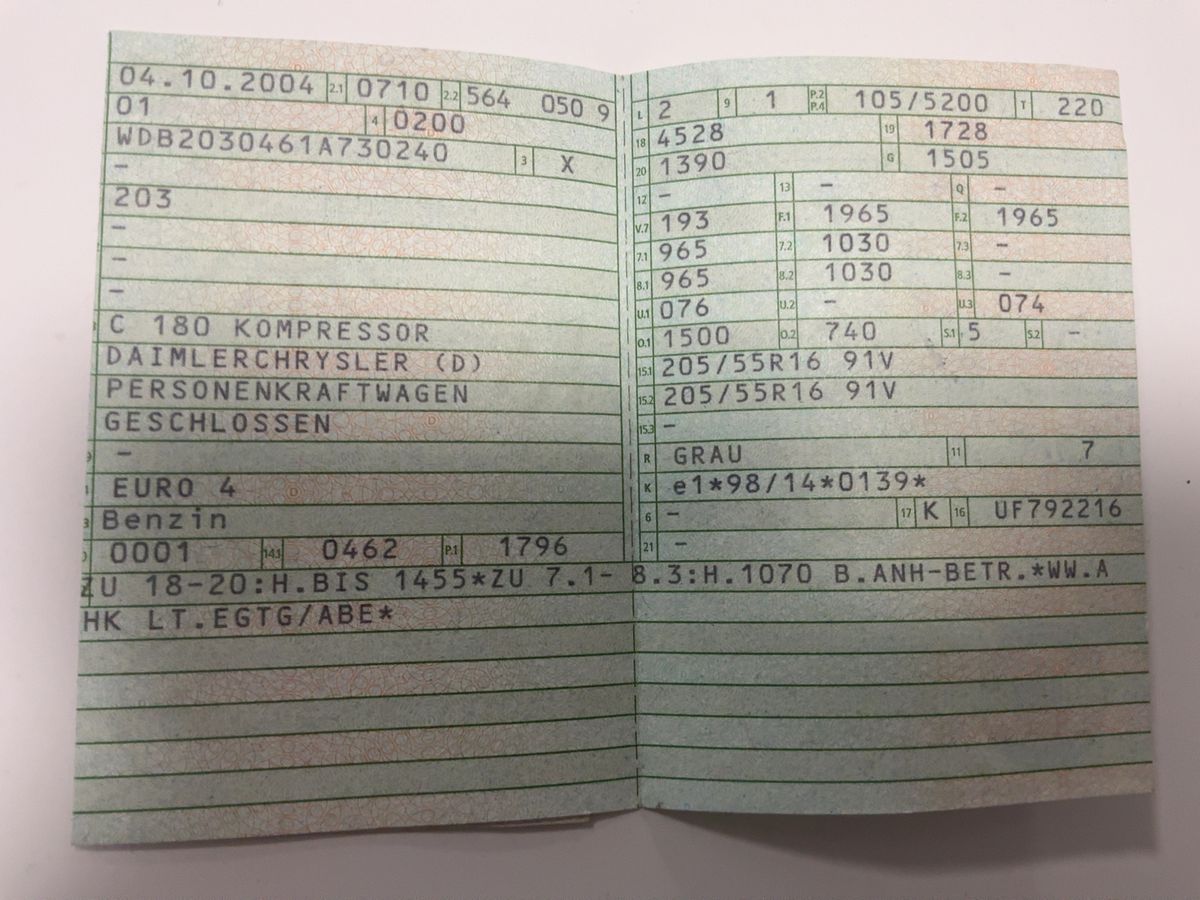 04.10.2004 2.1 0710 2.2 564 050 9
01 4 0200
WDB2030461A730240 3 X
–
203
–
–
–
C 180 KOMPRESSOR
DAIMLERCHRYSLER (D)
PERSONENKRAFTWAGEN
GESCHLOSSEN
–
EURO 4
Benzin
0001 14.1 0462 P.1 1796
L 2 9 1 P.2 P.4 105/5200 T 220
18 4528 19 1728
20 1390 G 1505
12 – 13 – Q –
V.7 193 F.1 1965 F.2 1965
7.1 965 7.2 1030 7.3 –
8.1 965 8.2 1030 8.3 –
U.1 076 U.2 – U.3 074
O.1 1500 O.2 740 S.1 5 S.2 –
15.1 205/55R16 91V
15.2 205/55R16 91V
15.3 –
R GRAU 11 7
K e1*98/14*0139*
6 – 17 K 16 UF792216
21 –
ZU 18-20:H.BIS 1455*ZU 7.1- 8.3:H.1070 B.ANH-BETR.*WW.A
HK LT.EGTG/ABE*